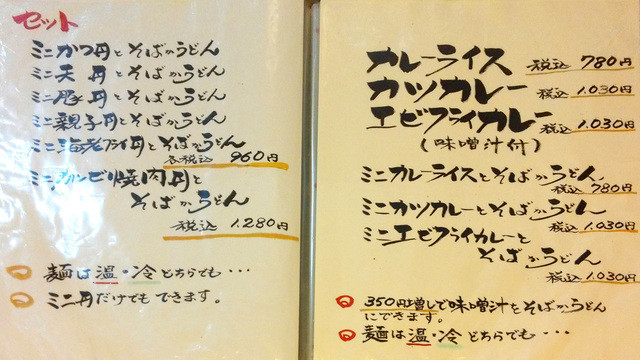 セット
ミニかつ丼とそばかうどん
ミニ天丼とそばかうどん
ミニ豚丼とそばかうどん
ミニ親子丼とそばかうどん
ミニ海老フライ丼とそばかうどん
各税込 960円
ミニカルビ焼肉丼と
そばかうどん
税込 1.280円
麺は温・冷どちらでも・・・
ミニ丼だけでもできます。
カレーライス 税込 780円
カツカレー 税込 1.030円
エビフライカレー 税込 1.030円
(味噌汁付)
ミニカレーライスとそばかうどん
税込 780円
ミニカツカレーとそばかうどん
税込 1.030円
ミニエビフライカレーと
そばかうどん
税込 1.030円
350円増しで味噌汁をそばかうどん
にできます。
麺は温・冷どちらでも・・・